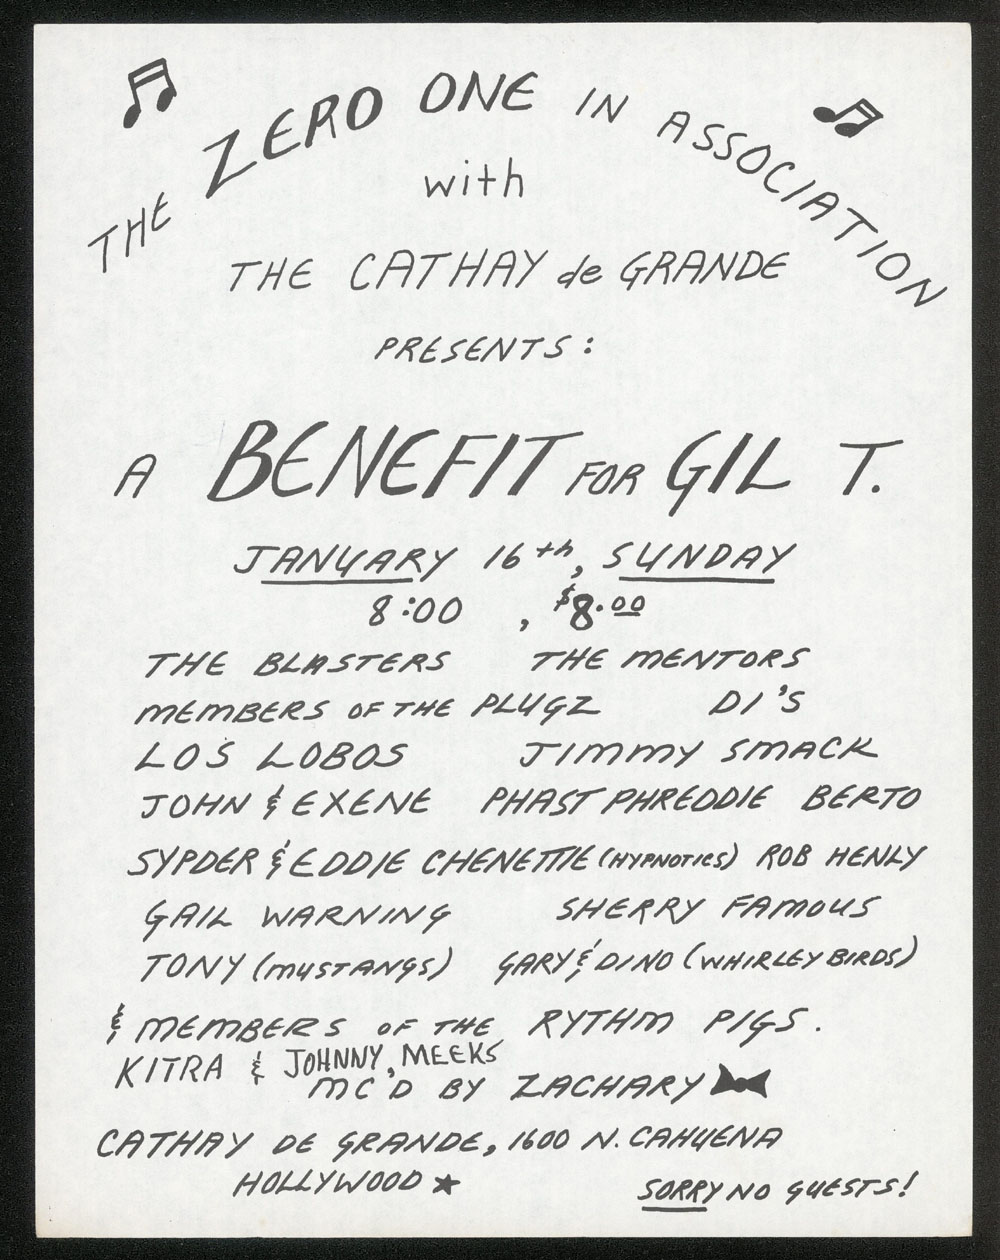 THE ZERO ONE IN ASSOCIATION
with
THE CATHAY de GRANDE
PRESENTS:
A BENEFIT FOR GIL T.
JANUARY 16th, SUNDAY
8:00 , $8.00
THE BLASTERS THE MENTORS
MEMBERS OF THE PLUGZ DI'S
LOS LOBOS JIMMY SMACK
JOHN & EXENE PHAST PHREDDIE BERTO
SYPDER & EDDIE CHENETTIE (HYPNOTICS) ROB HENLY
GAIL WARNING SHERRY FAMOUS
TONY (MUSTANGS) GARY & DINO (WHIRLEY BIRDS)
& MEMBERS OF THE RYTHM PIGS.
KITRA & JOHNNY, MEEKS
MC'D BY ZACHARY
CATHAY DE GRANDE, 1600 N. CAHUENA
HOLLYWOOD
SORRY NO GUESTS!